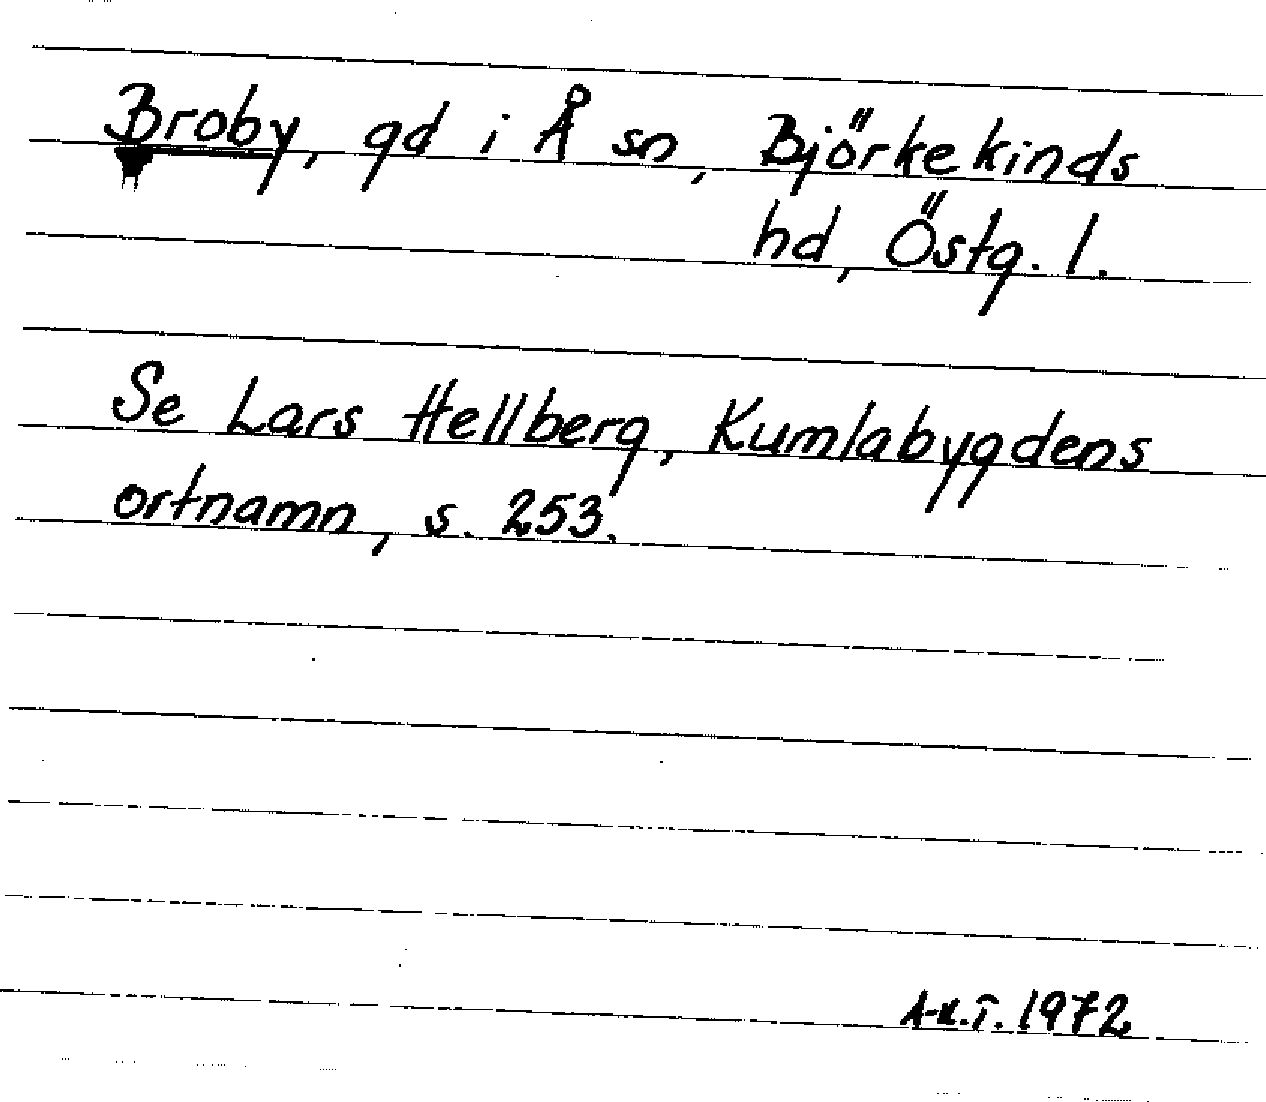 Broby, gd i Å sn, Björkekinds
hd, Östg. l.
Se Lars Hellberg, Kumlabygdens
ortnamn, s. 253.
A-K.T. 1972